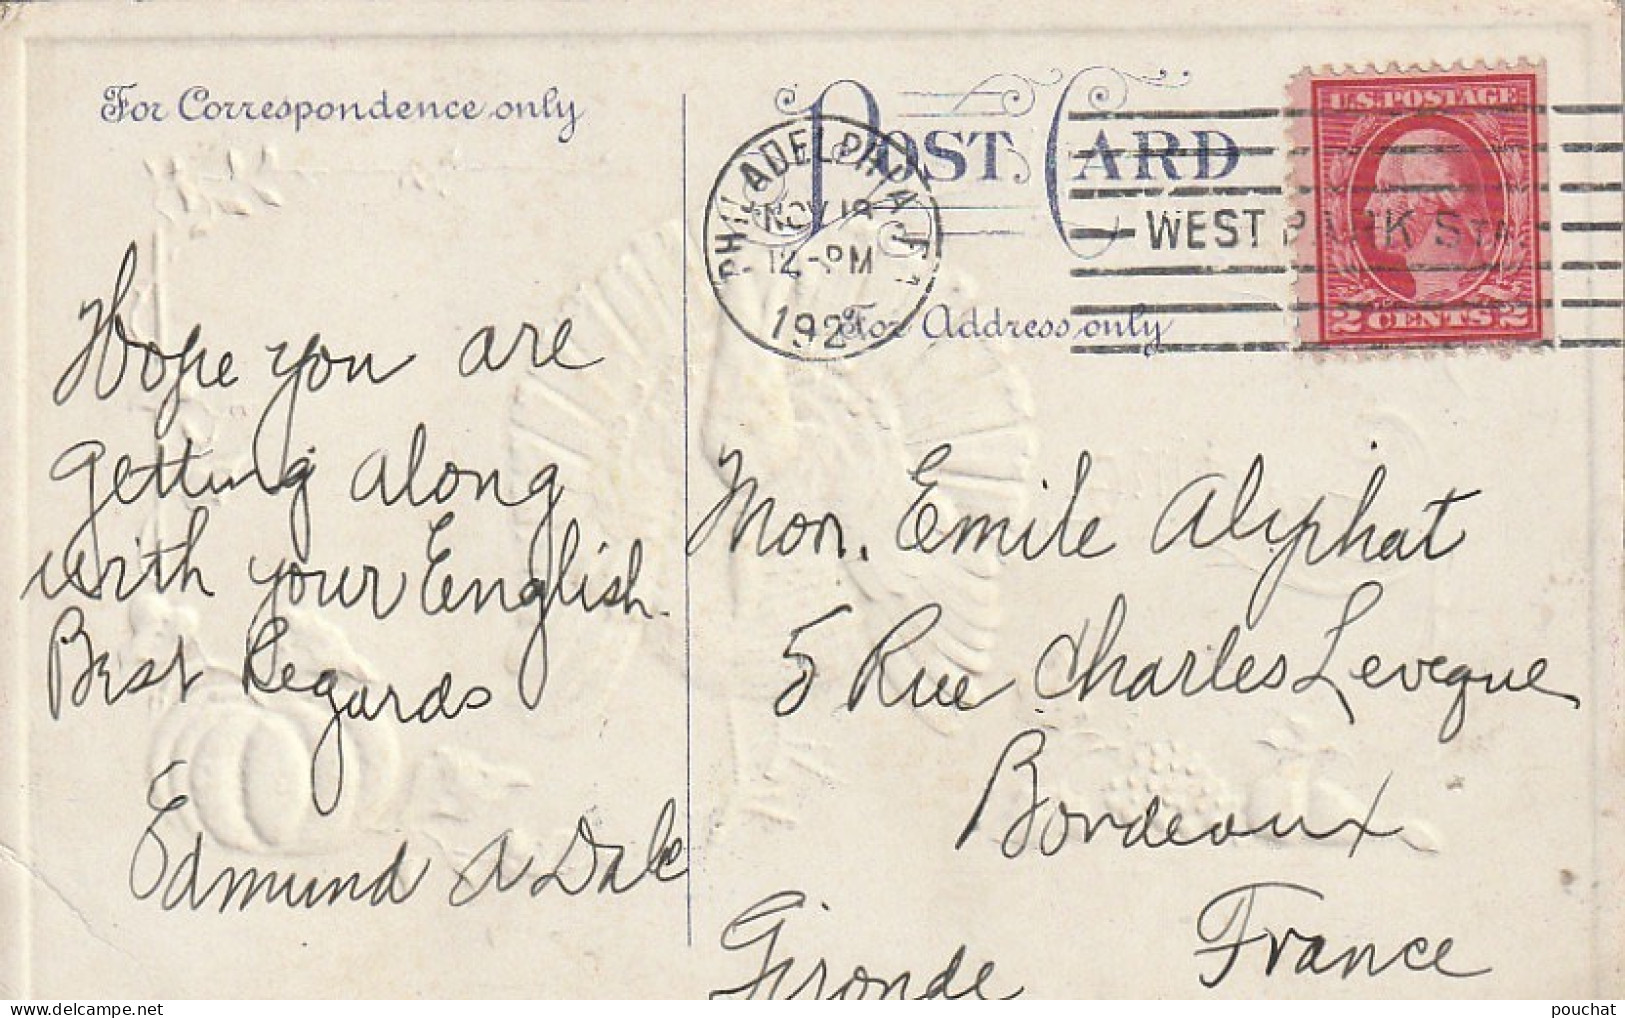 For Correspondence only
POST CARD
PHILADELPHIA, PA
NOV 19
12-PM
192
WEST PARK STA.
U.S. POSTAGE
2 CENTS 2
For Address only
Hope you are
getting along
with your English.
Best Regards
Edmund A Dale
Mon. Emile Aliphat
5 Rue Charles Leveque
Bordeaux
Gironde France
pouchat